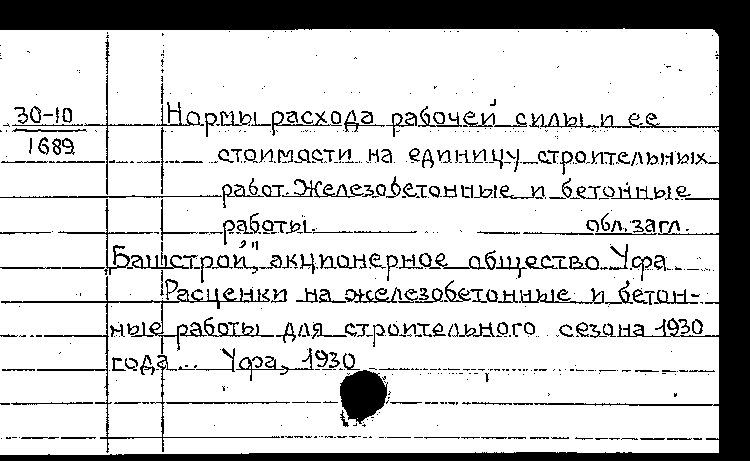 30-10
1689
Нормы расхода рабочей силы и ее
стоимости на единицу строительных
работ. Железобетонные и бетонные
работы. обл. загл.
"Башстрой", акционерное общество Уфа.
Расценки на железобетонные и бетон-
ные работы для строительного сезона 1930
года... Уфа, 1930